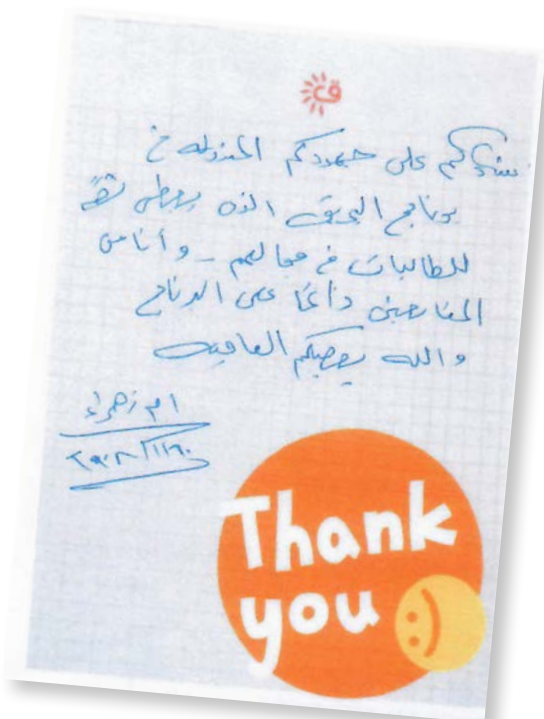 نشكركم على جهودكم المبذوله في
برنامج البريق الذي يعطي ثقة
للطالبات في مجالهم - وأنا من
المتابعين دائماً على البرنامج
والله يعطيكم العافيه
ام زهراء
Thank
you